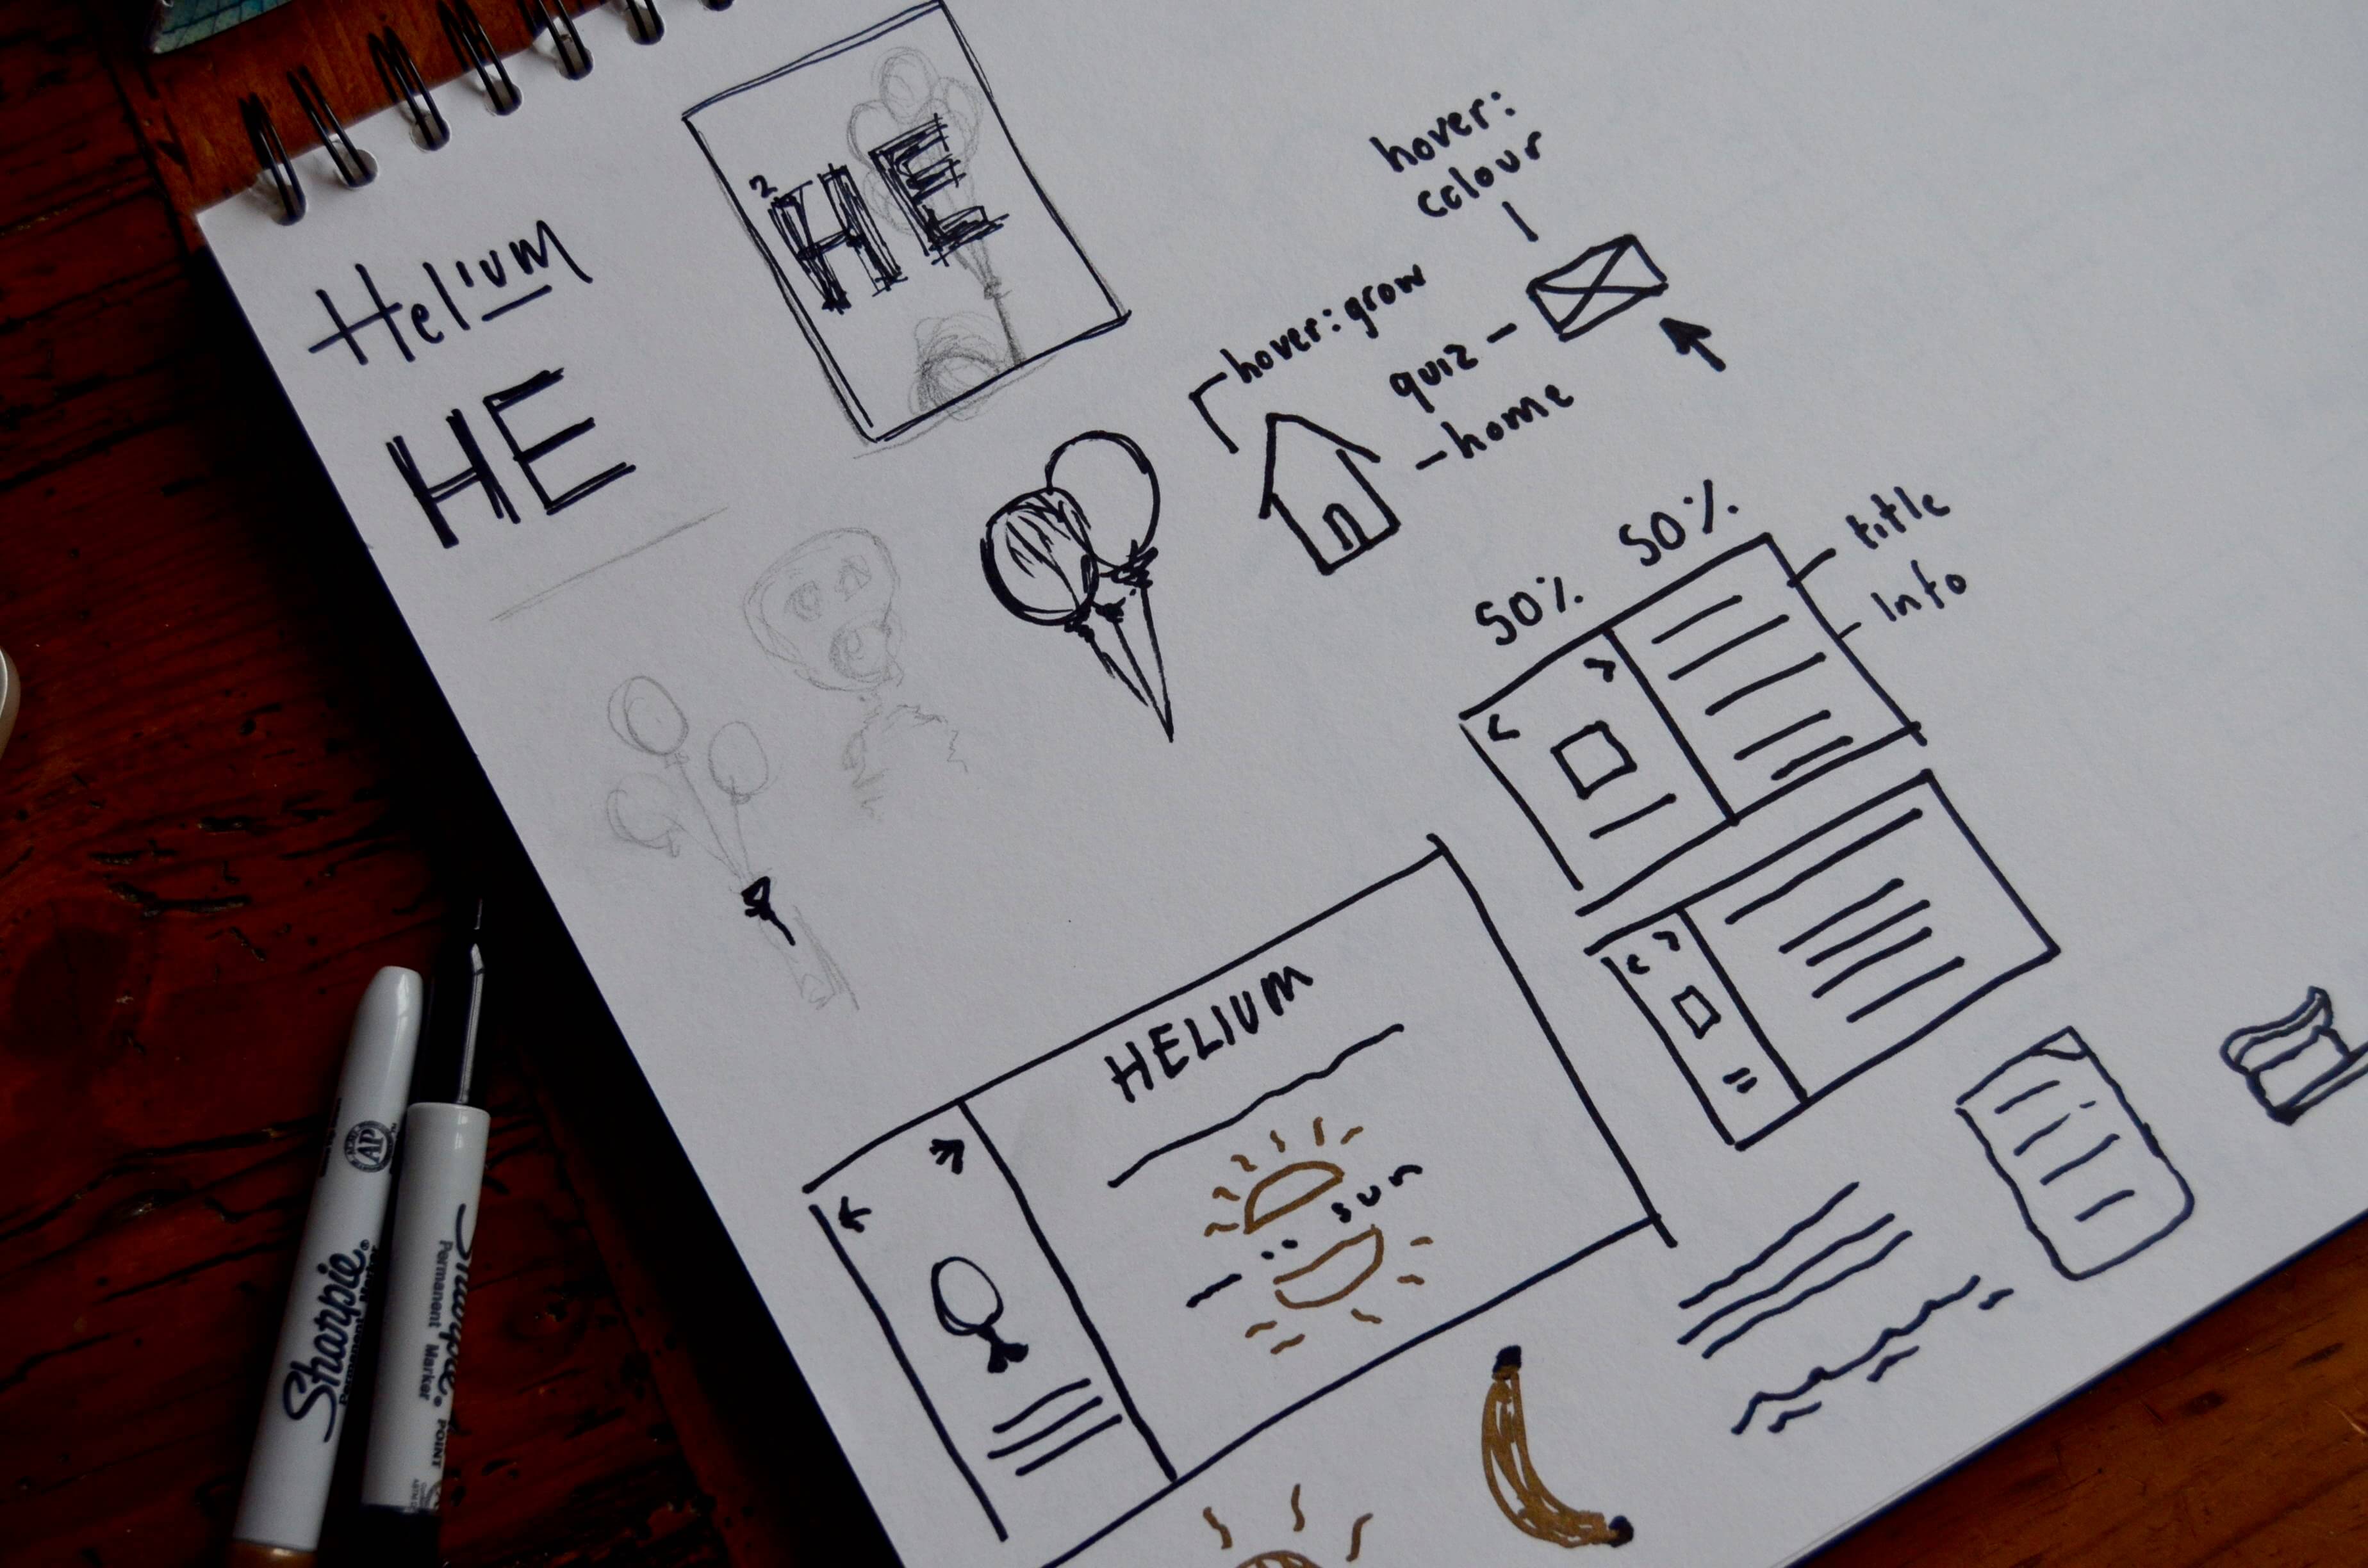 Helium
HE
2
HE
hover:
colour
hover: grow
quiz
home
50%
50%
title
Info
HELIUM
sun
Sharpie®
Permanent Marker
AP
Sharpie®
Permanent Marker
POINT